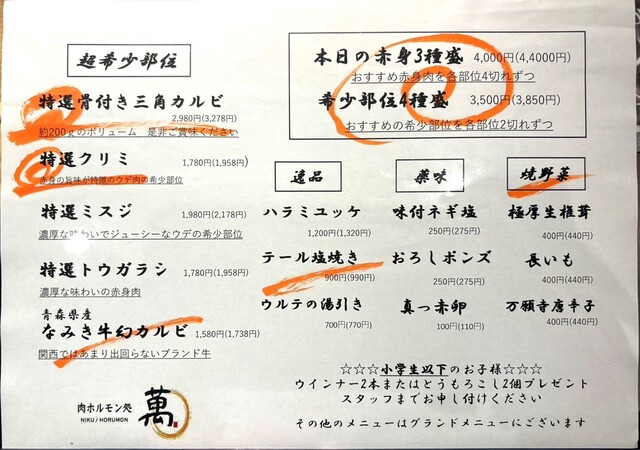 超希少部位
特選骨付き三角カルビ
2,980円(3,278円)
約200gのボリューム 是非ご賞味ください
特選クリミ 1,780円(1,958円)
赤身の旨味が特徴のウデ肉の希少部位
特選ミスジ 1,980円(2,178円)
濃厚な味わいでジューシーなウデの希少部位
特選トウガラシ 1,780円(1,958円)
濃厚な味わいの赤身肉
青森県産
なみき牛幻カルビ 1,580円(1,738円)
関西ではあまり出回らないブランド牛
肉ホルモン処
NIKU / HORUMON
萬
本日の赤身3種盛 4,000円(4,4000円)
おすすめ赤身肉を各部位4切れずつ
希少部位4種盛 3,500円(3,850円)
おすすめの希少部位を各部位2切れずつ
逸品
ハラミユッケ
1,200円(1,320円)
テール塩焼き
900円(990円)
ウルテの湯引き
700円(770円)
薬味
味付ネギ塩
250円(275円)
おろしポンズ
250円(275円)
真っ赤卵
100円(110円)
焼野菜
極厚生椎茸
400円(440円)
長いも
400円(440円)
万願寺唐辛子
400円(440円)
☆☆☆小学生以下のお子様☆☆☆
ウインナー2本またはとうもろこし2個プレゼント
スタッフまでお申し付けください
その他のメニューはグランドメニューにございます